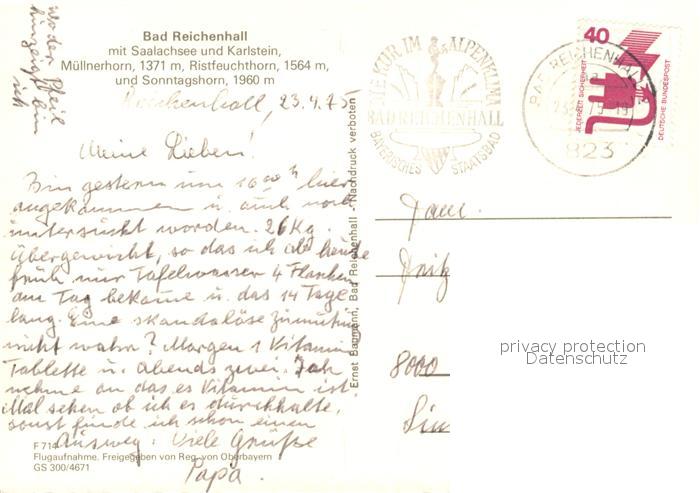 Bad Reichenhall
mit Saalachsee und Karlstein,
Müllnerhorn, 1371 m, Ristfeuchthorn, 1564 m,
und Sonntagshorn, 1960 m
Wo der Pfeil
hinzeigt bin
ich
Reichenhall, 23.4.75
Meine Lieben!
Bin gestern um 16ºº h hier
angekommen u. auch noch
untersucht worden. 26 Kg.
Übergewicht, so das ich ab heute
früh nur Tafelwasser 4 Flaschen
am Tag bekome u. das 14 Tage
lang. Eine skandalöse Zumutung
nicht wahr? Morgen 1 Vitamin
Tablette u. Abends zwei. Ich
nehme an das es Vitamin ist.
Mal sehen ob ich es durchhalte,
sonst finde ich schon einen
Ausweg. Viele Grüße
Papa.
F 714
Flugaufnahme. Freigegeben von Reg. von Oberbayern
GS 300/4671
Ernst Baumann, Bad Reichenhall - Nachdruck verboten
KUR IM ALPENKLIMA
BAD REICHENHALL
BAYERISCHES STAATSBAD
BAD REICHENHALL
823
40
JEDERZEIT SICHERHEIT
DEUTSCHE BUNDESPOST
Fam.
Fritz
8000
privacy protection
Datenschutz